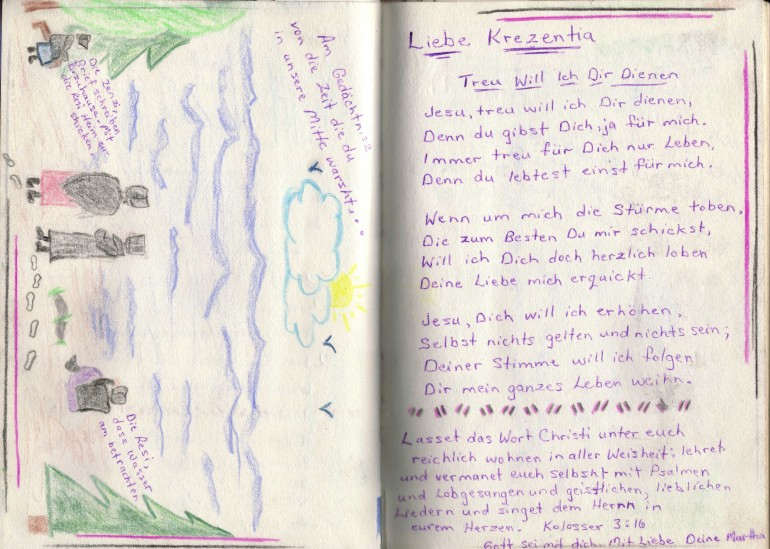 Am Gedächtnisz
von die Zeit die du
in unsere Mitte warsht...
Brief schreiben
Mit
die Resi Heim
shicken.
Die Resi,
dass Wasser
am betrachten
Liebe Krezentia
Treu Will Ich Dir Dienen
Jesu, treu will ich Dir dienen,
Denn du gibst Dich, ja für mich.
Immer treu für Dich nur Leben,
Denn du lebtest einst für mich.
Wenn um mich die Stürme toben,
Die zum Besten Du mir schickst,
Will ich Dich doch herzlich loben
Deine Liebe mich erquickt.
Jesu, Dich will ich erhöhen,
Selbst nichts gelten und nichts sein;
Deiner Stimme will ich folgen
Dir mein ganzes Leben weihn.
Lasset das Wort Christi unter euch
reichlich wohnen in aller Weisheit: lehret
und vermanet euch selbsht mit Psalmen
und Lobgesangen und geistlichen, lieblichen
Liedern und singet dem Herrn in
eurem Herzen. Kolosser 3:16
Gott sei mit dich. Mit Liebe Deine Martha